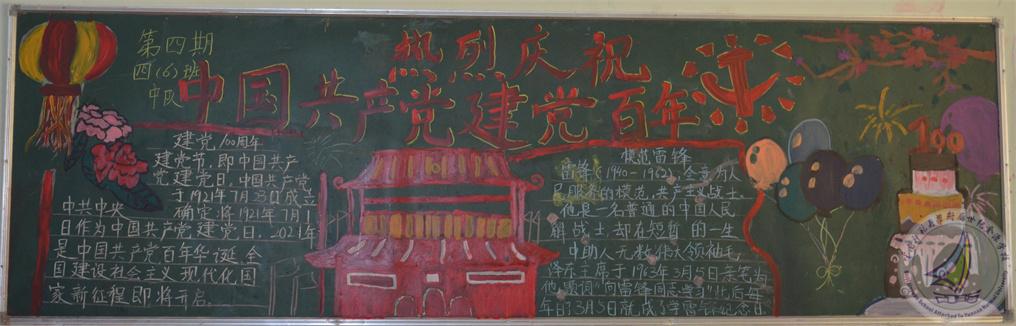 第四期
四(6)班
中队
热烈庆祝
中国共产党建党百年
建党100周年
建党节,即中国共产
党建党日。中国共产党
于1921年7月23日成立
中共中央 确定将1921年7月1
日作为中国共产党建党日。2021年
是中国共产党百年华诞,全
国建设社会主义现代化国
家新征程即将开启。
模范雷锋
雷锋(1940-1962),全意为人
民服务的模范,共产主义战士,
他是一名普通的中国人民
战士,却在短暂的一生
中助人无数,伟大领袖毛
泽东主席于1963年3月5日亲笔为
他题词"向雷锋同志学习",此后每
年的3月5日就成了学雷锋纪念日。
100